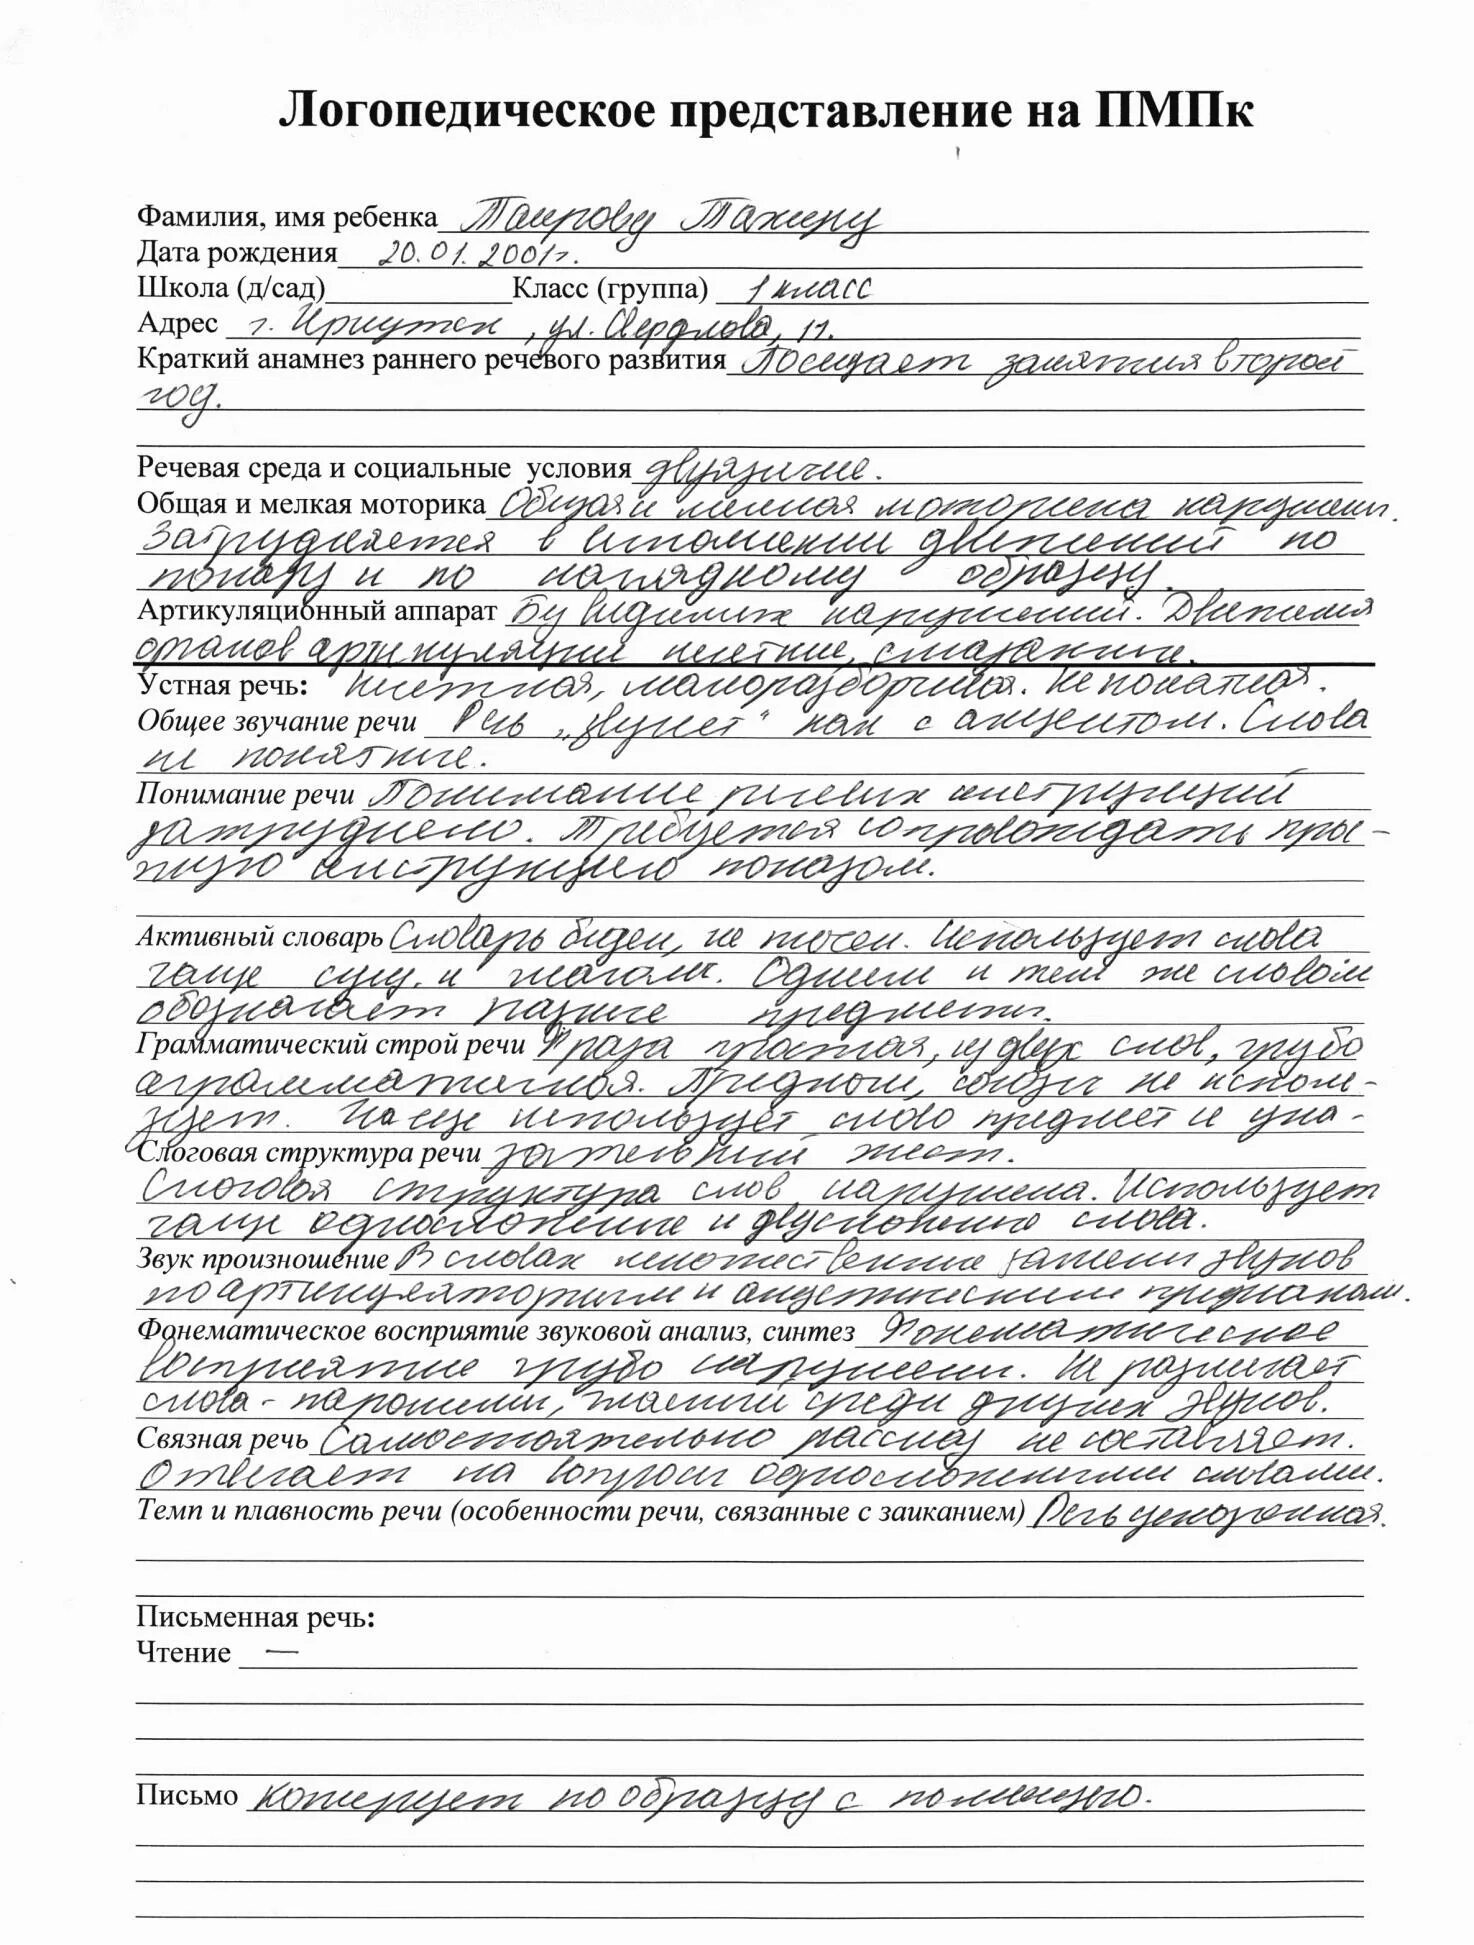 Логопедическое представление на ПМПк
Фамилия, имя ребенка Таирову Тахиру
Дата рождения 20.01.2001г.
Школа (д/сад) Класс (группа) 1 класс
Адрес г. Иркутск, ул. Свердлова, 11.
Краткий анамнез раннего речевого развития Посещает занятия второй
год.
Речевая среда и социальные условия двуязычие.
Общая и мелкая моторика Общая и мелкая моторика нарушены.
Затрудняется в исполнении движений по
показу и по наглядному образцу.
Артикуляционный аппарат Без видимых нарушений. Движения
органов артикуляции нечеткие, смазанные.
Устная речь: Нечеткая, малоразборчивая. Не понятная.
Общее звучание речи Речь „звучит" как с акцентом. Слова
не понятные.
Понимание речи Понимание речевых инструкций
затруднено. Требуется сопровождать
инструкцию показом.
Активный словарь Словарь беден, не точен. Использует слова
чаще сущ. и глаголы. Одним и тем же словом
обозначает разные предметы.
Грамматический строй речи Фраза простая, из двух слов, грубо
аграмматичная. Предлоги, союзы не исполь-
зует. Чаще использует слово предмет и ука-
Слоговая структура речи зательный жест.
Слоговая структура слов нарушена. Использует
чаще односложные и двусложные слова.
Звук произношение В словах множественные замены звуков
по артикуляторным и акустическим признакам.
Фонематическое восприятие звуковой анализ, синтез Фонематическое
восприятие грубо нарушено. Не различает
слова-паронимы, гласный среди других звуков.
Связная речь Самостоятельно рассказ не составляет.
Отвечает на вопросы односложными словами.
Темп и плавность речи (особенности речи, связанные с заиканием) Речь ускоренная.
Письменная речь:
Чтение —
Письмо Копирует по образцу с помощью.